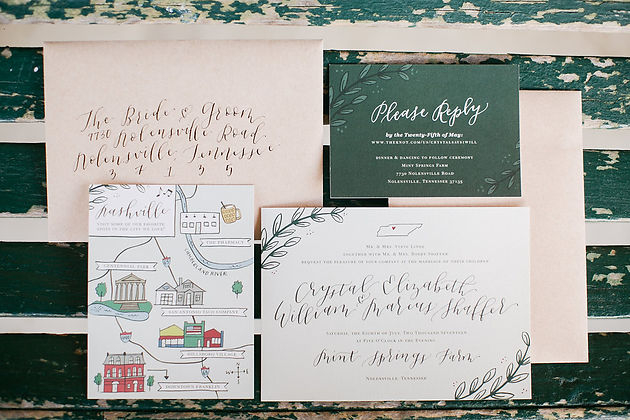 The Bride & Groom
7730 Nolensville Road
Nolensville, Tennessee
37135
Please Reply
by the Twenty-Fifth of May:
WWW.THEKNOT.COM/US/CRYSTALSAYSIWILL
DINNER & DANCING TO FOLLOW CEREMONY
MINT SPRINGS FARM
7730 NOLENSVILLE ROAD
NOLENSVILLE, TENNESSEE 37135
Nashville
VISIT SOME OF OUR FAVORITE
SPOTS IN THE CITY WE LOVE
THE PHARMACY
CUMBERLAND RIVER
CENTENNIAL PARK
SAN ANTONIO TACO COMPANY
HILLSBORO VILLAGE
DOWNTOWN FRANKLIN
MR. & MRS. STEVE
TOGETHER WITH MR. & MRS. BOBBY SHAFFER
REQUEST THE PLEASURE OF YOUR COMPANY AT THE MARRIAGE OF THEIR CHILDREN
Crystal Elizabeth
&
William Marcus Shaffer
SATURDAY, THE EIGHTH OF JULY, TWO THOUSAND SEVENTEEN
AT FIVE O'CLOCK IN THE EVENING
Mint Springs Farm
NOLENSVILLE, TENNESSEE